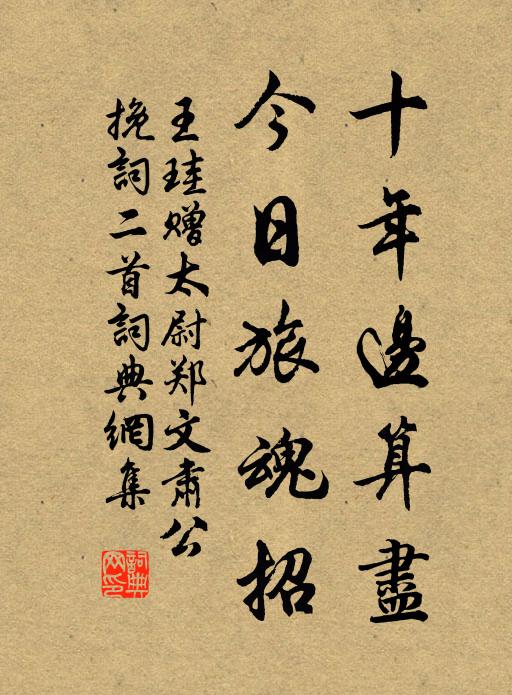 十年邊算盡
今日旅魂招
王珪赠太尉郑文肅公
挽詞二首詞典網集
詞典
网印